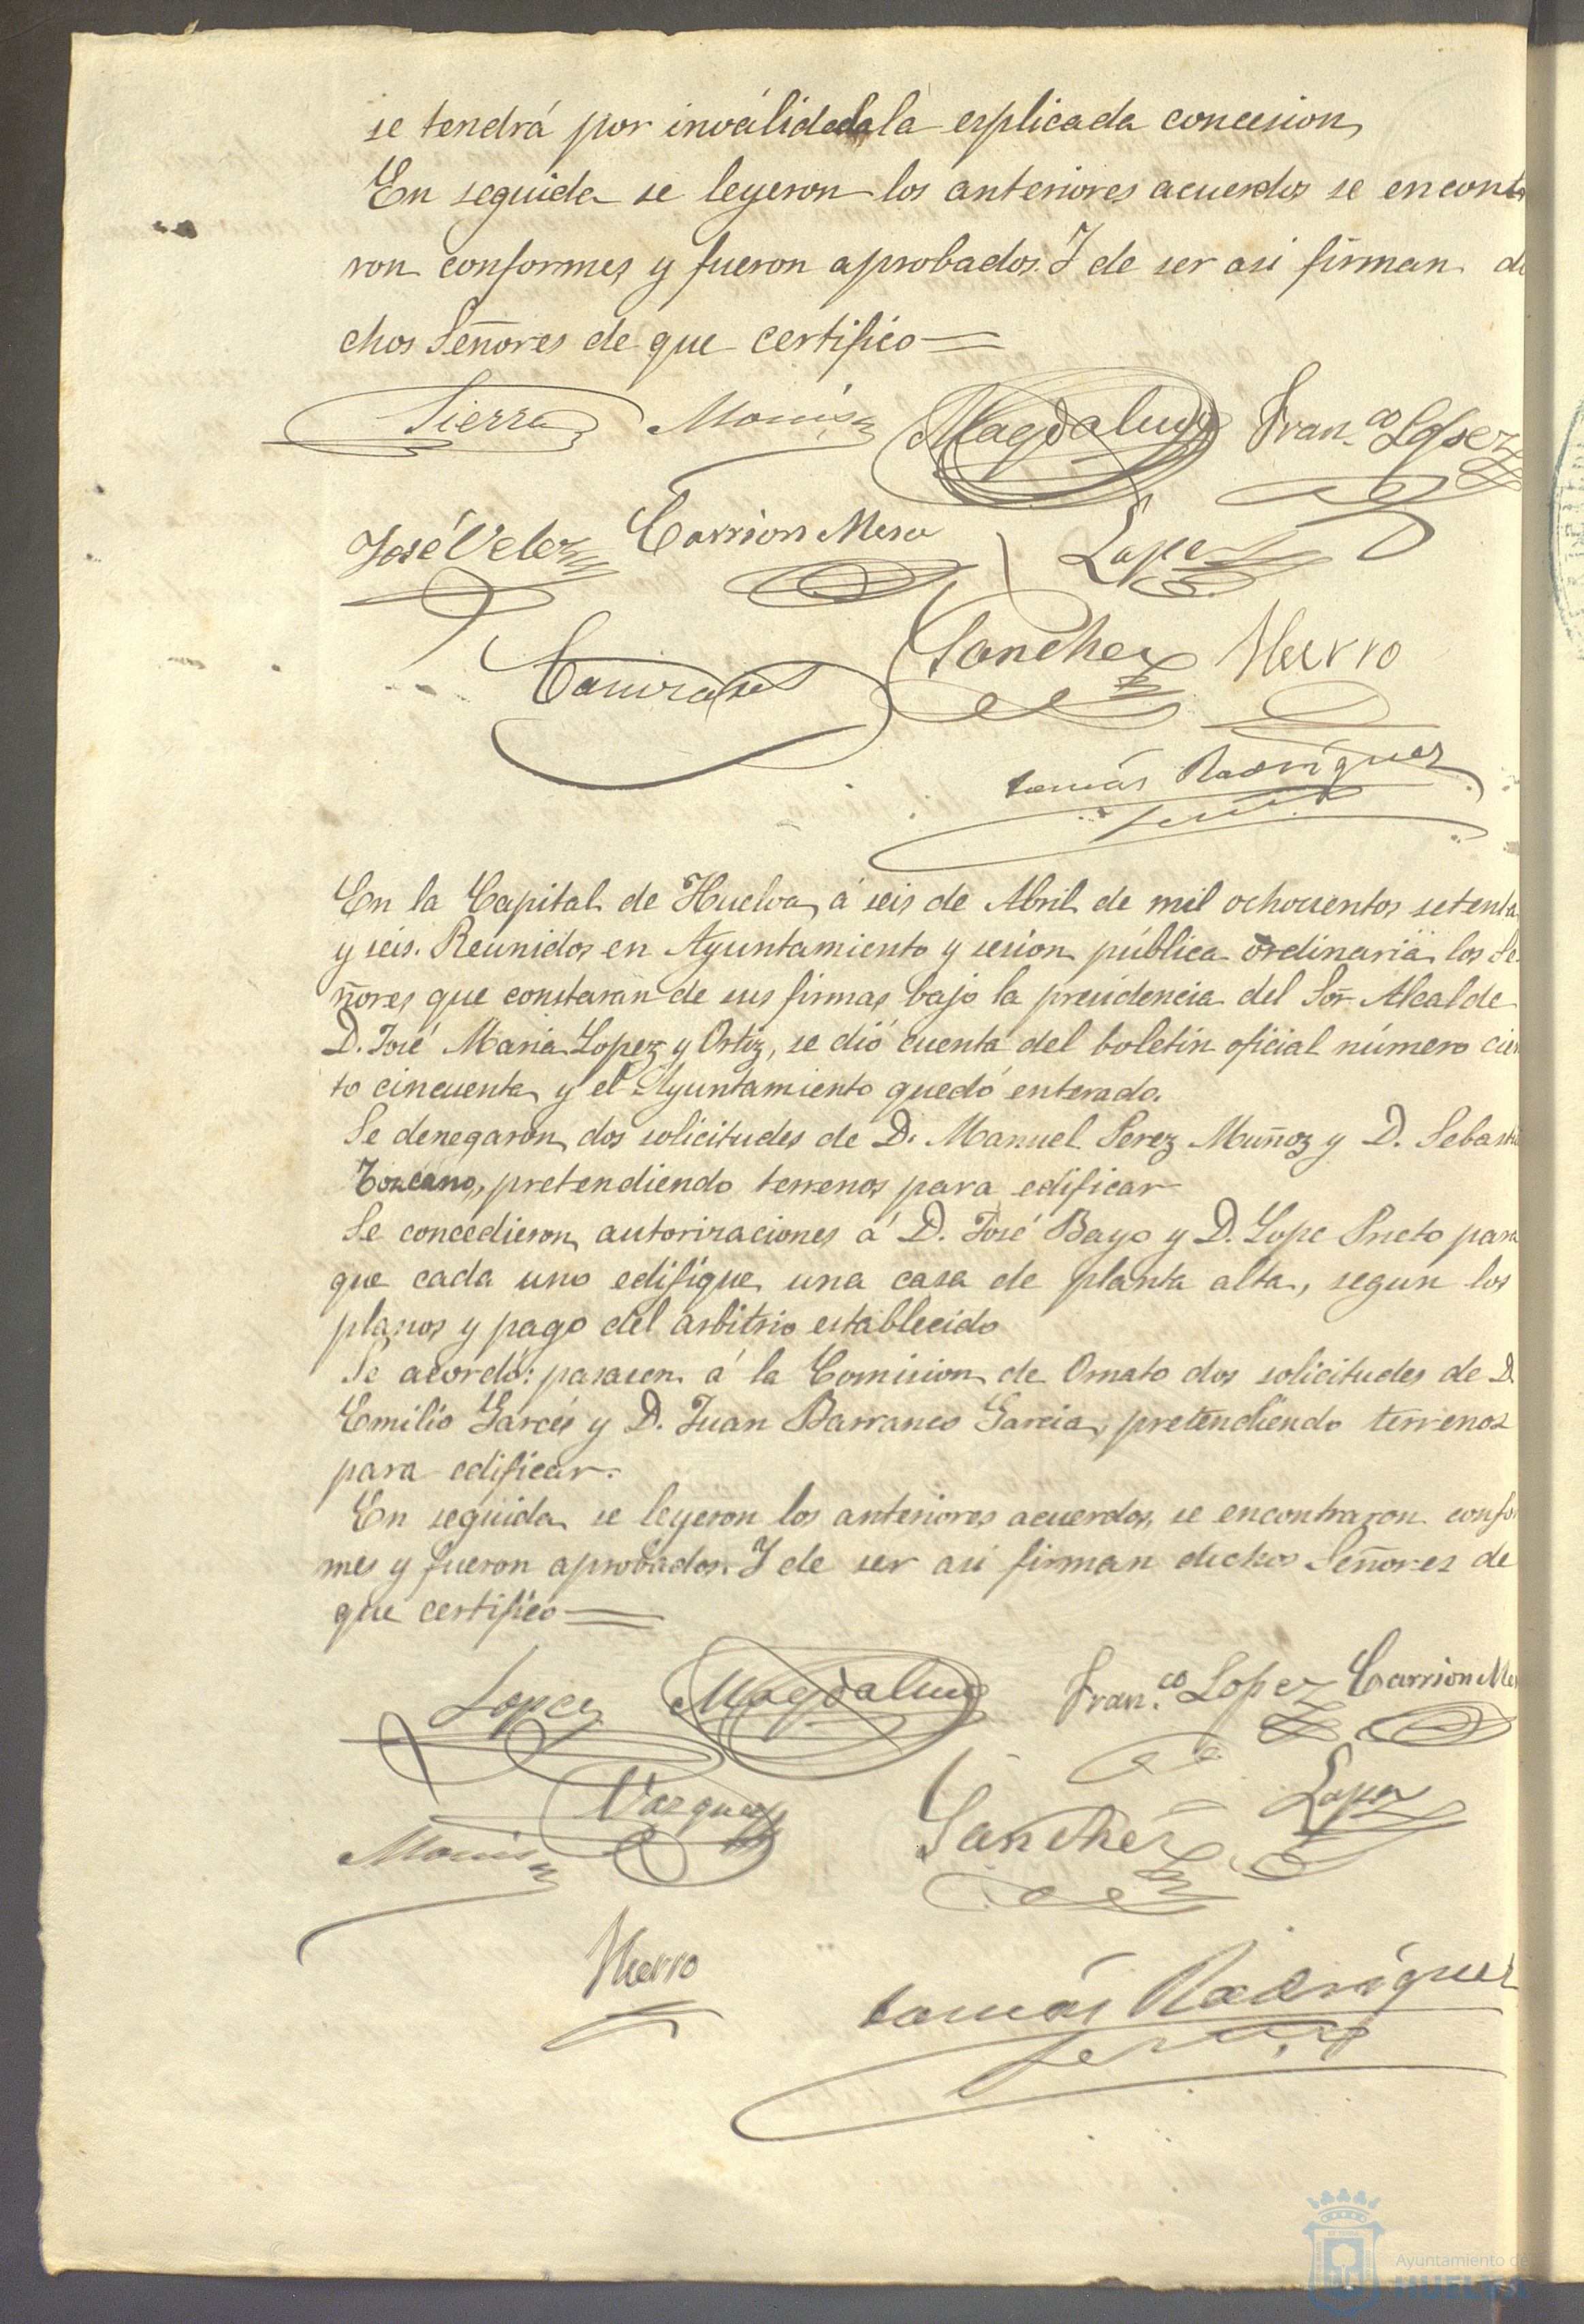 se tendrá por inválidada la esplicada concesion
En seguida se leyeron los anteriores acuerdos se encontra
ron conformes y fueron aprobados. Y de ser asi firman di
chos Señores de que certifico
Sierra Monis Magdaluy Fran.co Lopez
José Velez Carrion Mesa Lopez
Sanchez Hierro
Tomás Rodriguez
En la Capital de Huelva á seis de Abril de mil ochocientos setenta
y seis. Reunidos en Ayuntamiento y sesion pública ordinaria los Se
ñores que constaran de sus firmas bajo la presidencia del Sor Alcalde
D. José Maria Lopez y Ortiz, se dió cuenta del boletin oficial número cien
to cincuenta y el Ayuntamiento quedó enterado.
Se denegaron dos solicitudes de D. Manuel Perez Muñoz y D. Sebastia
Toscano, pretendiendo terrenos para edificar
Se concedieron autorizaciones á D. José Bayo y D. Lope Prieto para
que cada uno edifique una casa de planta alta, segun los
planos y pago del arbitrio establecido
Se acordó: pasasen á la Comision de Ornato dos solicitudes de D.
Emilio Garcés y D. Juan Barranco Garcia, pretendiendo terrenos
para edificar.
En seguida se leyeron los anteriores acuerdos, se encontraron confor
mes y fueron aprobados. Y de ser asi firman dichos Señores de
que certifico
Lopez Magdaluy Fran.co Lopez Carrion Me
Vazquez Sanchez Lopez
Monis
Hierro Tomás Rodriguez
Ayuntamiento de
HUELVA